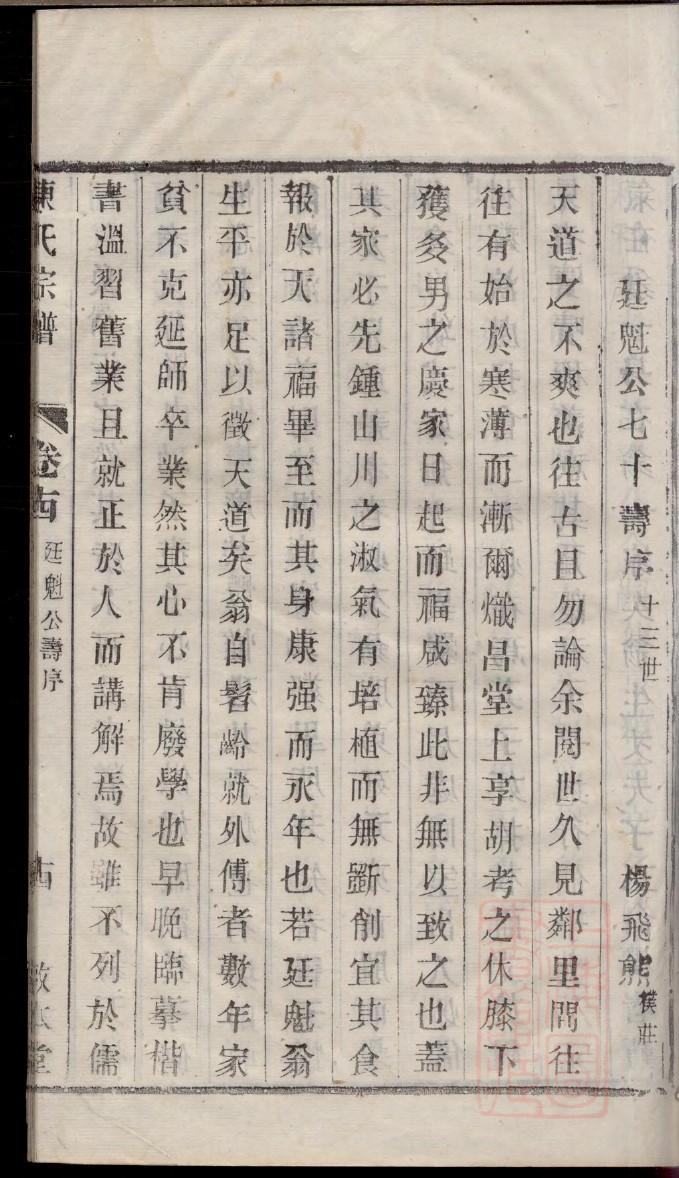 廷魁公七十壽序 十三世 楊飛熊 樸莊
天道之不爽也往古且勿論余閱世久見鄰里間往
往有始於寒薄而漸爾熾昌堂上享胡考之休膝下
獲多男之慶家日起而福咸臻此非無以致之也蓋
其家必先鍾山川之淑氣有培植而無斵削宜其食
報於天諸福畢至而其身康强而永年也若廷魁翁
生平亦足以徵天道矣翁自髫齡就外傅者數年家
貧不克延師卒業然其心不肯廢學也早晚臨摹楷
書溫習舊業且就正於人而講解焉故雖不列於儒
陳氏宗譜 卷十四 廷魁公壽序 十四 敦本堂